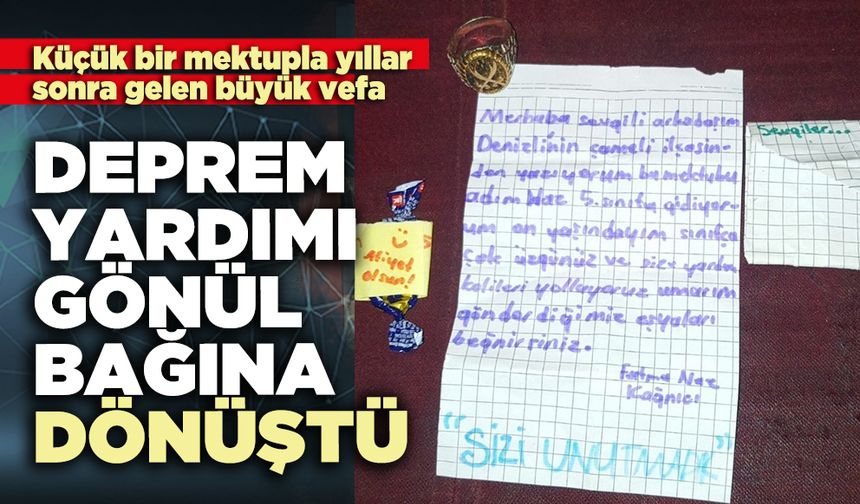 Küçük bir mektupla yıllar
sonra gelen büyük vefa
DEPREM
YARDIMI
GÖNÜL
BAĞINA
DÖNÜŞTÜ
Afiyet
olsun!
Merhaba sevgili arkadaşım
Denizli'nin çameli ilçesin-
den yazıyorum bu mektubu
adım Naz 5. sınıfa gidiyor-
um on yaşındayım sınıfça
çok üzgünüz ve size yardım
kolileri yolluyoruz umarım
gönderdiğimiz eşyaları
beğnirsiniz.
Fatma Naz
Kağnıcı
"SİZİ UNUTMADIK"
Sevgiler...